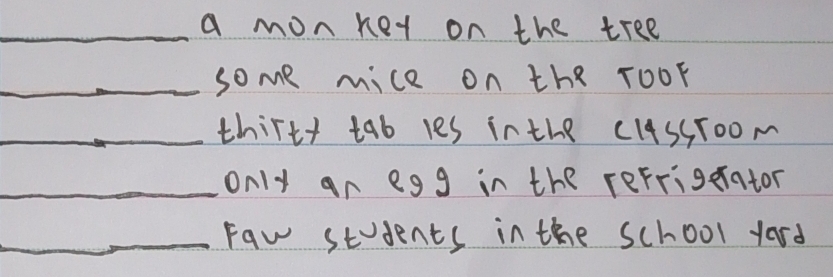 a monkey on the tree
some mice on the roof
thirty tables in the classroom
only an egg in the refrigerator
Faw students in the school yard